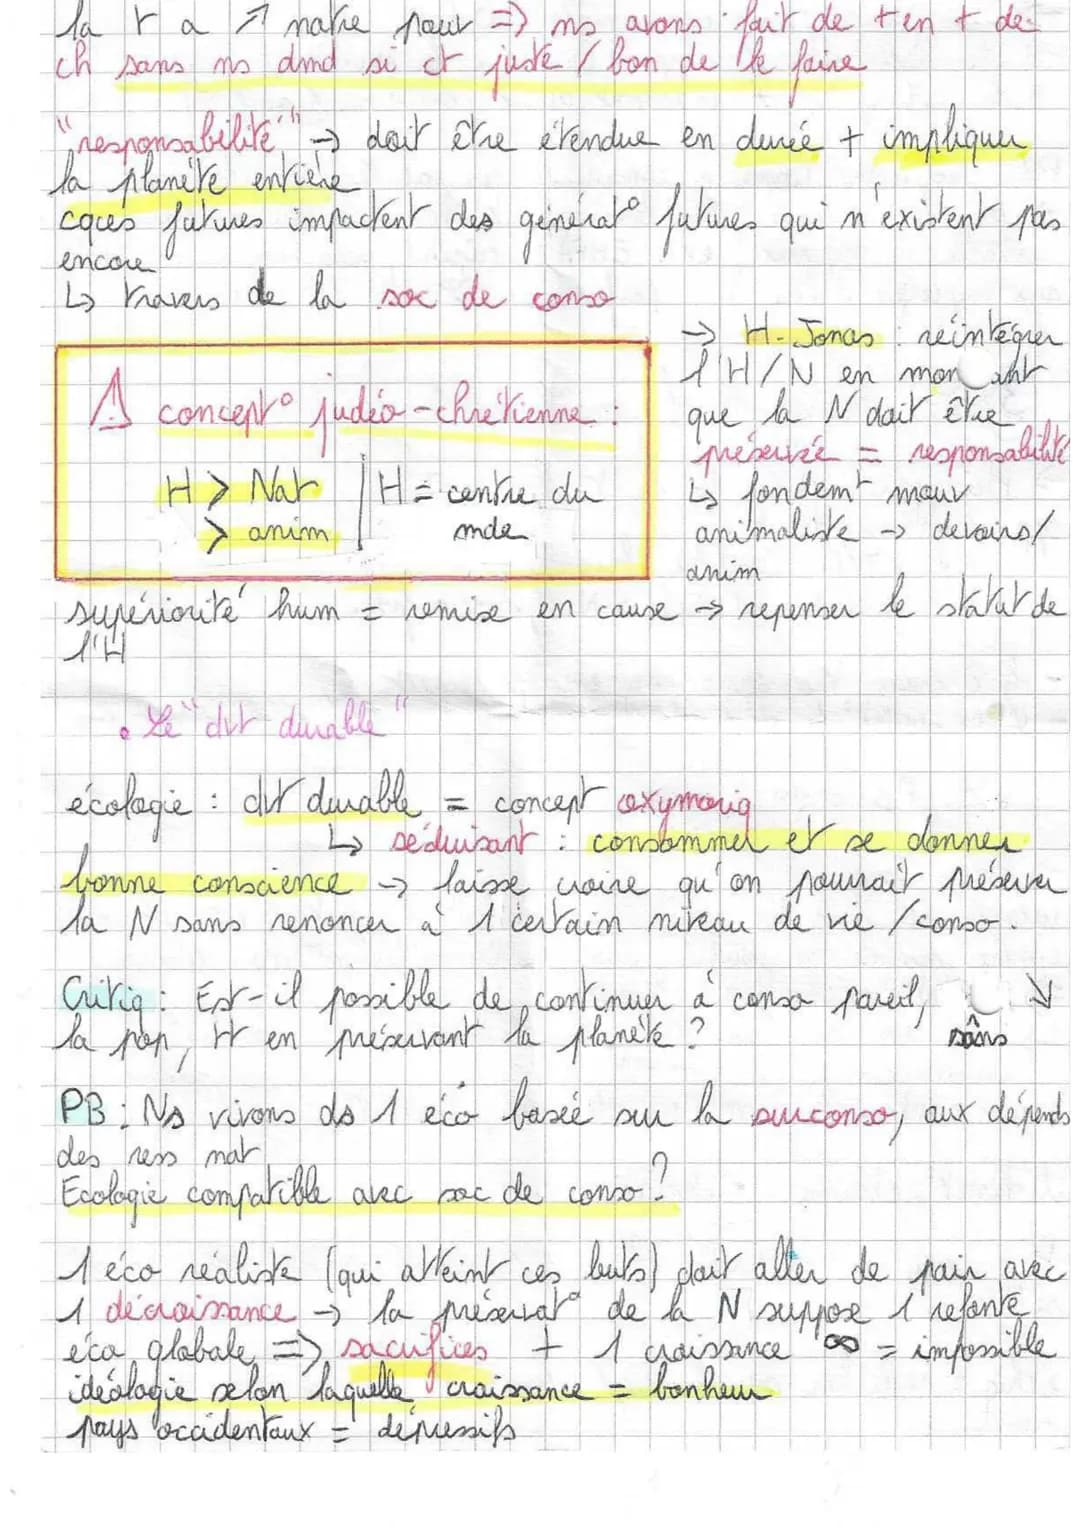 la r a ↗ notre pour => ns avons fait de + en + de
ch sans ns dmd si ct juste / bon de le faire
"responsabilité" -> doit être étendue en durée + impliquer
la planète entière
cques futures impactent des générat° futures qui n'existent pas
encore
↳ travers de la soc de conso
-> H. Jonas : réintégrer
l'H/N en mon ant
que la N doit être
préservée = responsabilité
↳ fondemt mouv
animaliste -> devoirs/
anim
⚠ concept° judéo-chrétienne :
H > Nat | H = centre du
> anim | mde
supériorité hum = remise en cause -> repenser le statut de
l'H
• Le "dvt durable"
écologie : dvt durable = concept oxymoriq
↳ séduisant : consommer et se donner
bonne conscience -> laisse croire qu'on pourrait préserver
la N sans renoncer à 1 certain niveau de vie / conso.
Critiq : Est-il possible de continuer à conso pareil, ↘
sans
la pop, tt en préservant la planète ?
PB : Ns vivons ds 1 éco basée sur la surconso, aux dépends
des ress nat
Ecologie compatible avec soc de conso ?
1 éco réaliste (qui atteint ces buts) doit aller de pair avec
1 décroissance -> la préservat° de la N suppose 1 refonte
éco globale => sacrifices + 1 croissance ∞ = impossible
idéologie selon laquelle croissance = bonheur
pays occidentaux = dépressifs